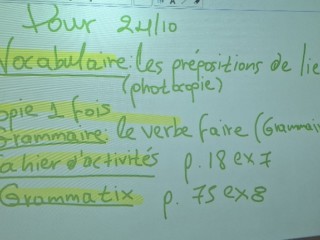 Pour 24/10
Vocabulaire: les prépositions de lie
(photocopie)
opie 1 fois
Grammaire: le verbe faire (Grammai
ahier d'activités p. 18 ex 7
Grammatix p. 75 ex 8